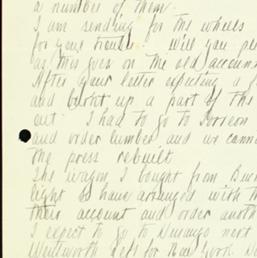 a number of them.
I am sending for the wheels
for your trouble. Will you ple
as this goes on the old account
After your letter rejecting a f
and burnt up a part of the
out. I had to go to
and order lumber and we canno
the press rebuilt.
The wagon I bought from Bur
light so have arranged with th
their account and order anoth
I expect to go to Durango next
Wentworth gets for